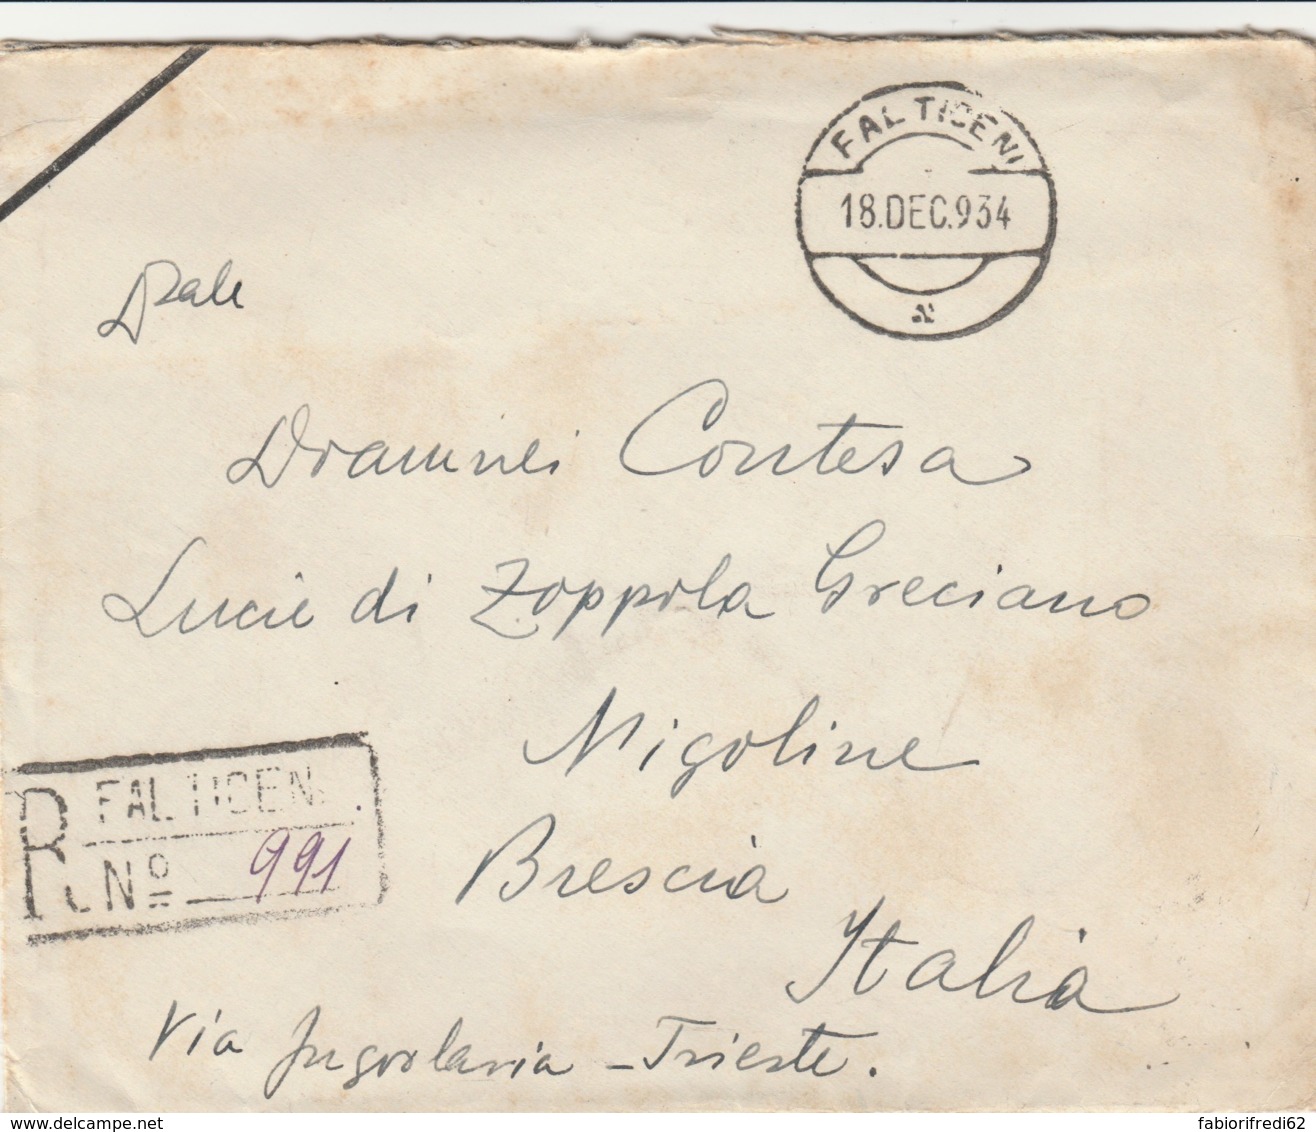 FALTICENI
18.DEC.934
Dramnei Contesa
Lucie di Zoppola Greciano
Nigoline
Brescia
Italia
R FALTICENI
Nº 991
Via Jugoslavia - Trieste.
delcampe.net
fabiorifredi62